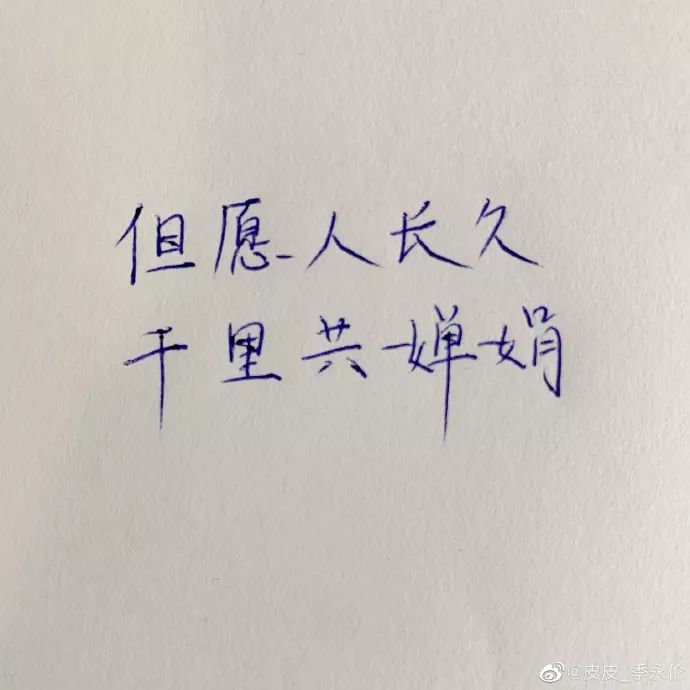 但愿人长久
千里共婵娟
@皮皮_季永伦